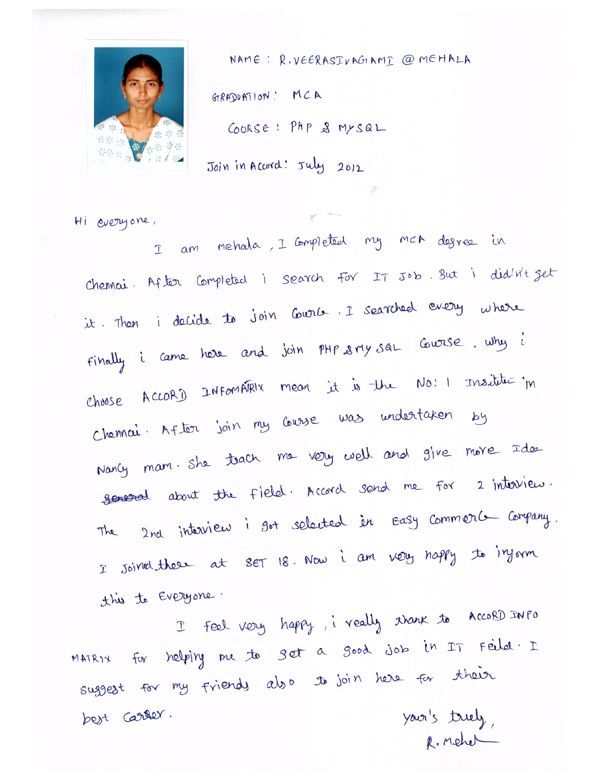 NAME : R.VEERASIVAGAMI @ MEHALA
GRADUATION : MCA
COURSE : PHP & MYSQL
Join in Accord : July 2012
Hi everyone,
I am mehala, I Completed my MCA degree in
Chennai. After Completed i search for IT Job. But i did'n't get
it. Then i decide to join Cource. I searched every where
finally i came here and join PHP & MY SQL Course. Why i
choose ACCORD INFOMATRIX mean it is the No: 1 Institute in
Chennai. After join my Course was undertaken by
Nancy mam. She teach me very well and give more Idea
about the field. Accord send me for 2 interview.
The 2nd interview i got selected in Easy Commerce Company.
I Joined there at SET 18. Now i am very happy to inform
this to Everyone.
I feel very happy, i really thank to ACCORD INFO
MATRIX for helping me to get a good job in IT Feild. I
suggest for my friends also to join here for their
best Carrer.
Your's truly,
R. Mehal